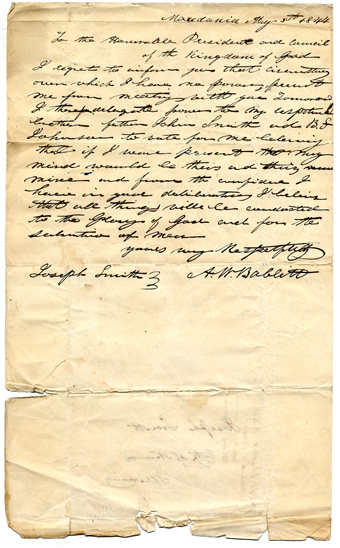 Macedonia May 5th 1844
To the Honorable President and Council
of the Kingdom of God
I regret to inform you that circumstances
over which I have no power, prevent
me from meeting with you tomorrow
I delegate power to my
father John Smith and
to vote for me believing
that if I were present
mind would be theirs and
mine and from the confidence I
have in your deliberations I believe
that all things will be conducted
to the Glory of God and for the
salvation of men
yours very Respectfully
Joseph Smith A. W. Babbitt
Joseph Smith